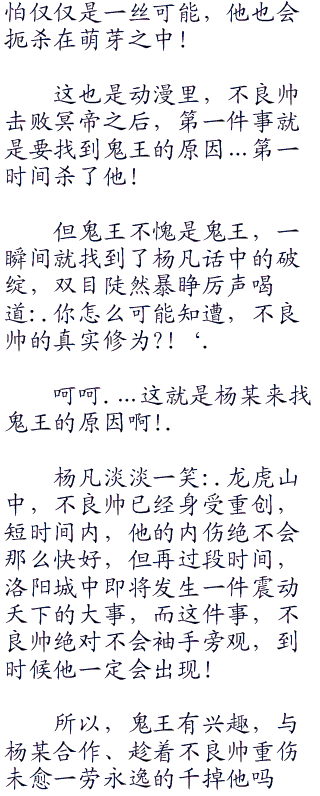 怕仅仅是一丝可能，他也会
扼杀在萌芽之中！
这也是动漫里，不良帅
击败冥帝之后，第一件事就
是要找到鬼王的原因…第一
时间杀了他！
但鬼王不愧是鬼王，一
瞬间就找到了杨凡话中的破
绽，双目陡然暴睁厉声喝
道:.你怎么可能知遭，不良
帅的真实修为?！‘.
呵呵.…这就是杨某来找
鬼王的原因啊!.
杨凡淡淡一笑:.龙虎山
中，不良帅已经身受重创，
短时间内，他的内伤绝不会
那么快好，但再过段时间，
洛阳城中即将发生一件震动
天下的大事，而这件事，不
良帅绝对不会袖手旁观，到
时候他一定会出现！
所以，鬼王有兴趣，与
杨某合作、趁着不良帅重伤
未愈一劳永逸的干掉他吗